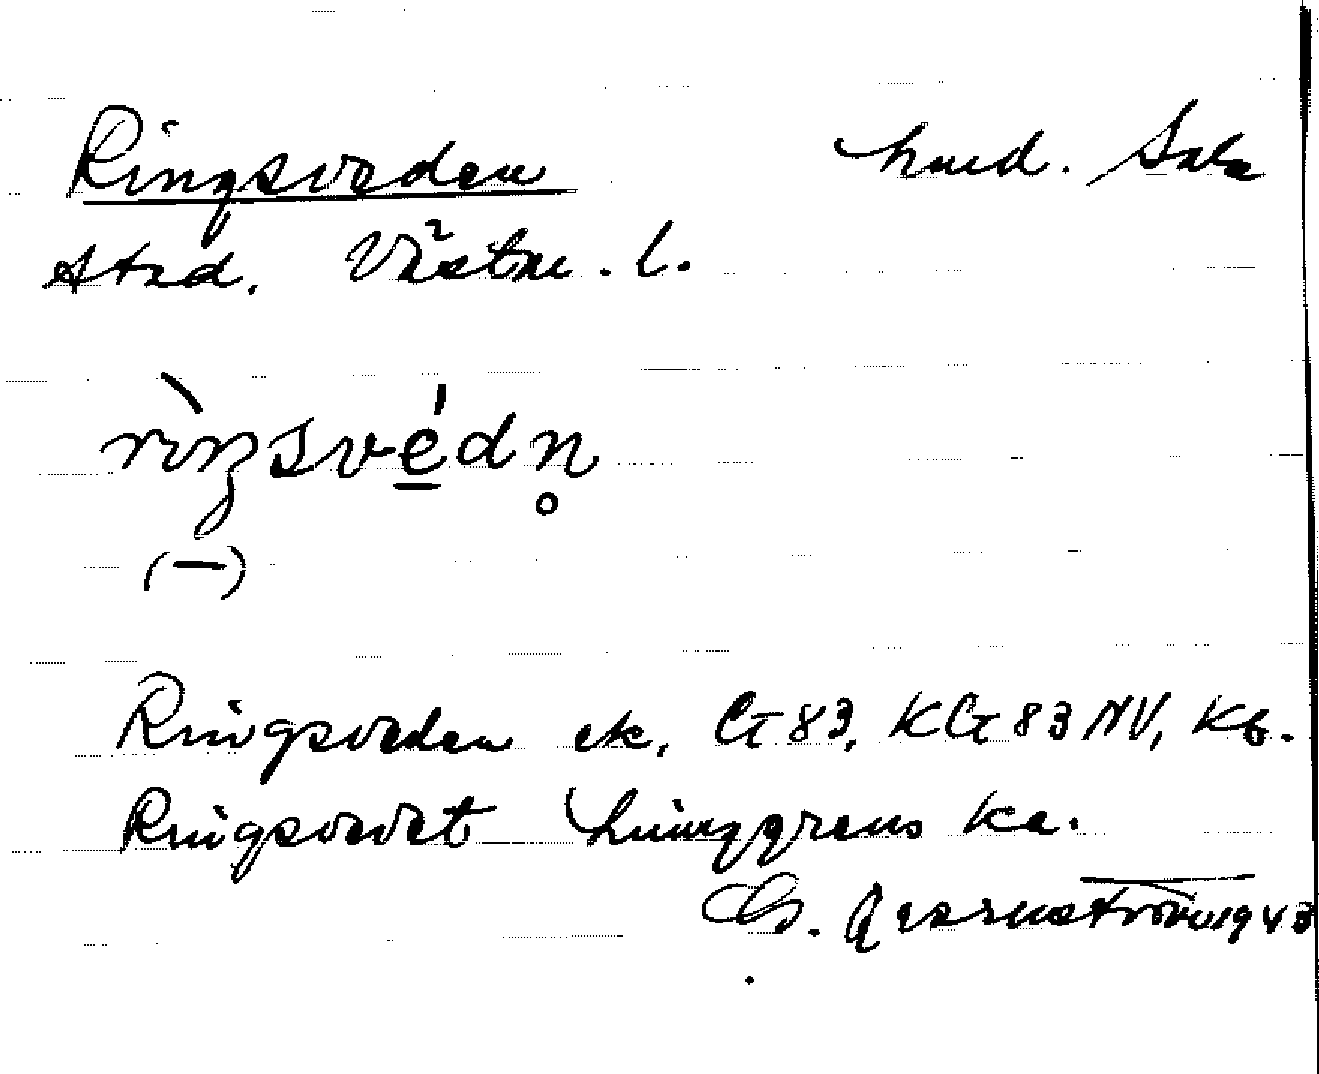 Ringsveden hmd. Sala
stad. Västm. l.
rìŋsvédn̥
(–)
Ringsveden ek, GT 83, KGT 83 NV, Kb.
Ringsvedet Ljunggrens Ka.
G. 1943